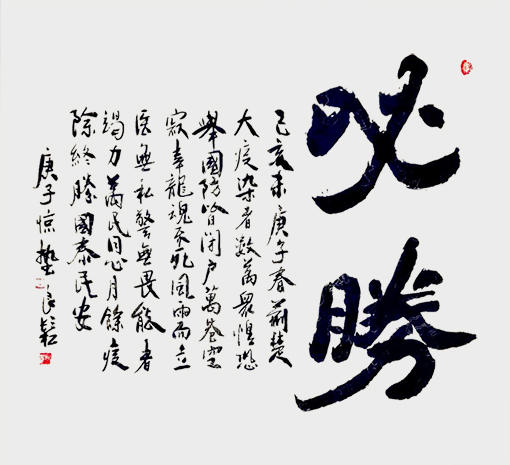 必勝
己亥末庚子春荊楚
大疫染者数萬衆惶恐
舉國防皆閉户萬巷空
寂幸龍魂不死風雨而立
医無私警無畏能者
竭力萬民同心月餘疫
除終勝國泰民安
庚子惊蟄良